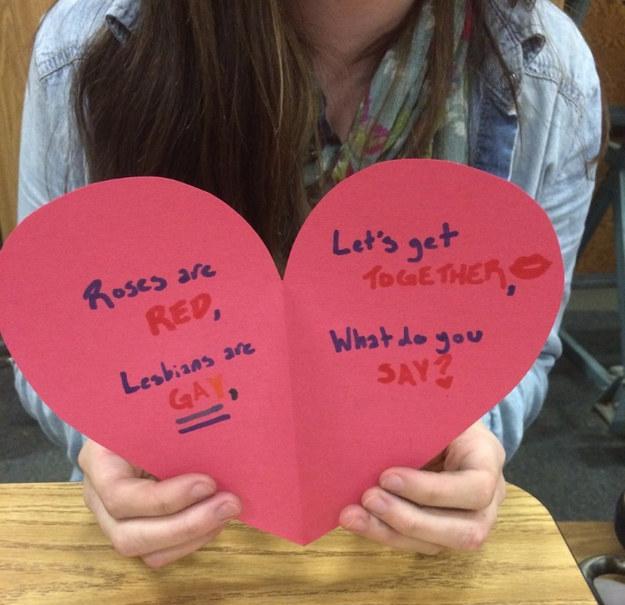 Roses are
RED,
Lesbians are
GAY,
Let's get
TOGETHER,
What do you
SAY?